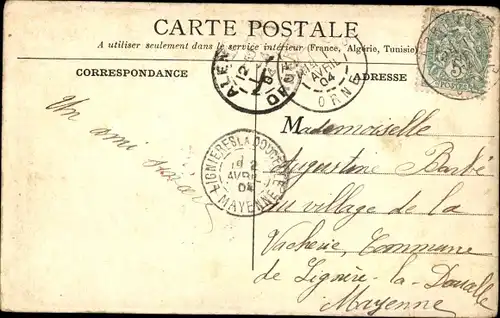 CARTE POSTALE
A utiliser seulement dans le service intérieur (France, Algérie, Tunisie)
CORRESPONDANCE
ADRESSE
ORNE
AVRIL
04
LIGNIERES LA DOUCELLE
2
AVRIL
04
MAYENNE
Un ami
Mademoiselle
Augustine Barbé
au village de la
Vacherie, Commune
de Lignère-la-Doucelle
Mayenne